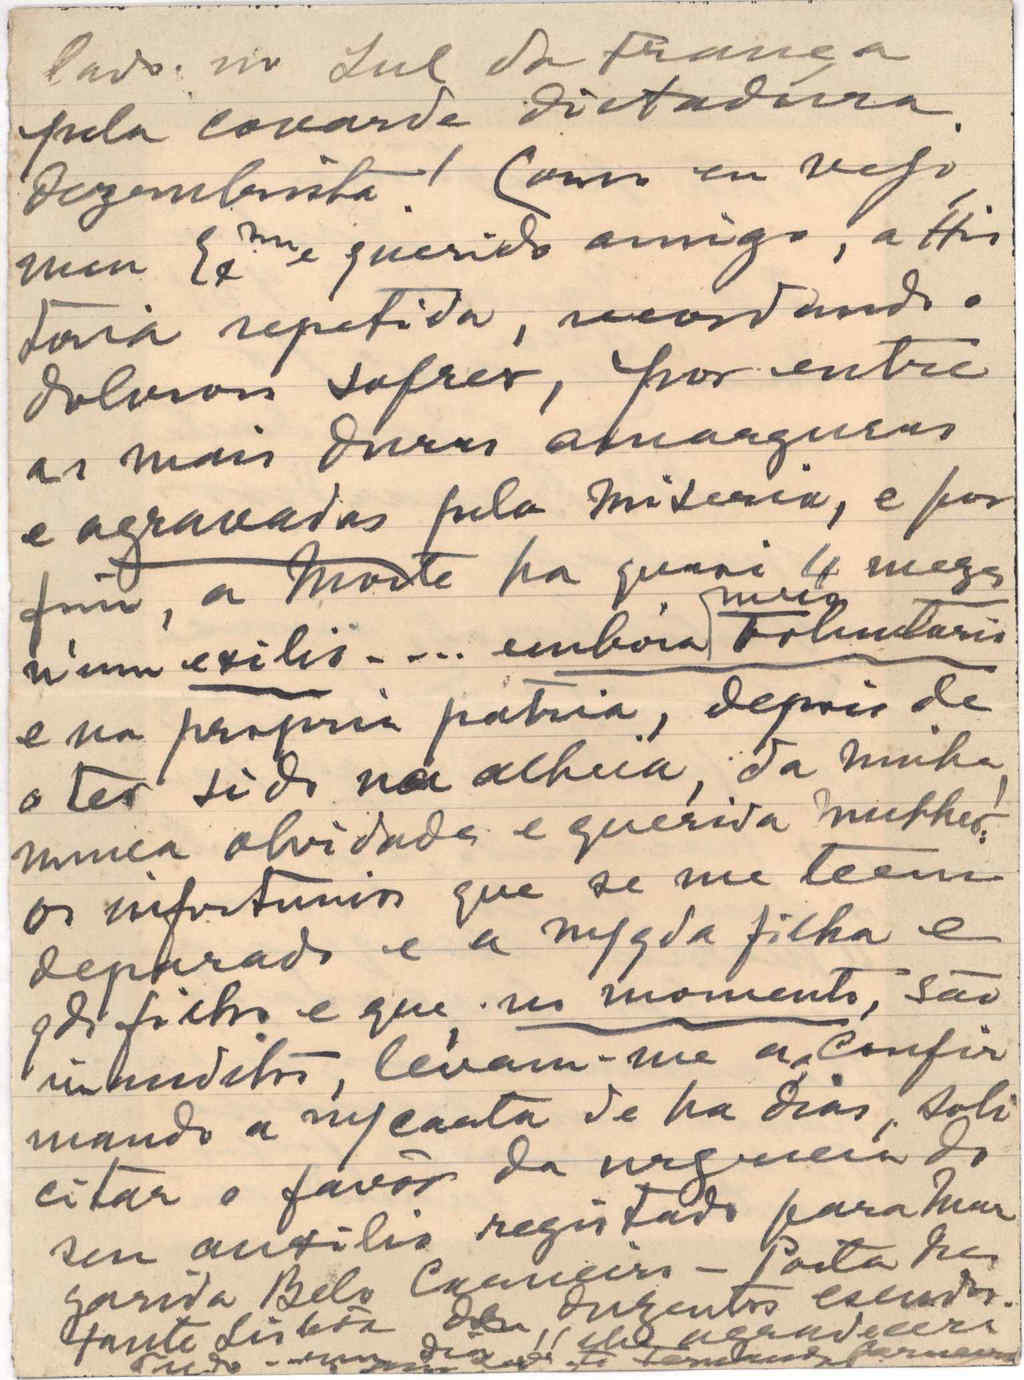 lado no Sul da França
pela covarde dictadura
dezembrista! Como eu vejo,
meu Exmo e querido amigo, a His
toria repetida, recordando o
doloroso sofrer, por entre
as mais duras amarguras
e agravadas pela miseria, e por
fim, a Morte ha quasi 4 mezes
n'um exilio.... embora meio voluntario
e na propria patria, depois de
o ter sido na alheia, da minha,
nunca olvidada e querida mulher!
Os infortunios que se me teem
deparado e a m/ qda filha e
qdos filhos e que, no momento, são
inauditos, levam-me a, confir
mando a m/ carta de ha dias, soli
citar o favôr da urgencia do
seu auxilio registado para Mar
garida Belo Carneiro - Posta Res
tante Lisbôa dos duzentos escudos.
Tudo dia!! agradecera